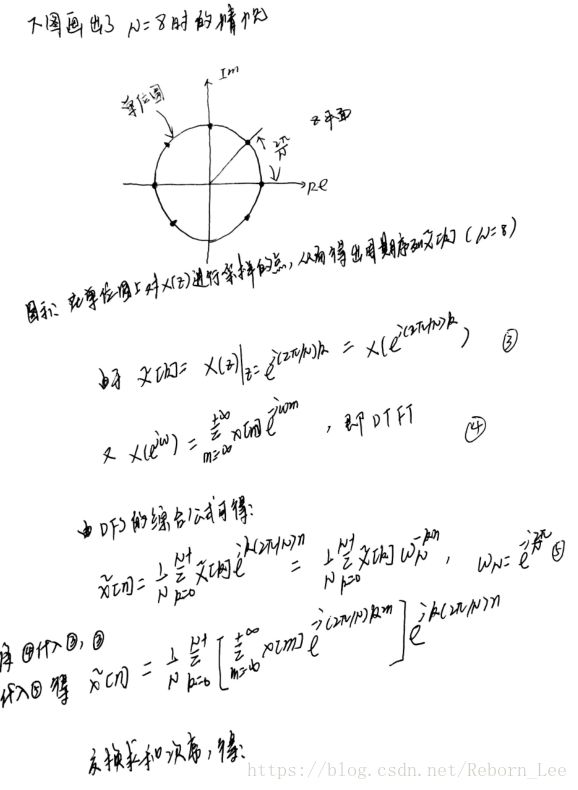 下图画出了 N=8时的情况
Im
单位圆
z平面
2π/N
Re
图示: 在单位圆上对X(z)进行采样的点, 从而得出周期序列X̃[k] (N=8)
由于 X̃[k] = X(z)|z=e^{j(2π/N)k} = X(e^{j(2π/N)k}) ③
又 X(e^{jω}) = Σ_{m=-∞}^{+∞} x[m] e^{-jωm} , 即DTFT ④
由DFS的综合公式可得:
x̃[n] = 1/N Σ_{k=0}^{N-1} X̃[k] e^{jk(2π/N)n} = 1/N Σ_{k=0}^{N-1} X̃[k] W_N^{-kn} , W_N = e^{-j2π/N} ⑤
将④代入③, ③
代入⑤得 x̃[n] = 1/N Σ_{k=0}^{N-1} [ Σ_{m=-∞}^{+∞} x[m] e^{-j(2π/N)km} ] e^{jk(2π/N)n}
交换求和次序, 得:
https://blog.csdn.net/Reborn_Lee